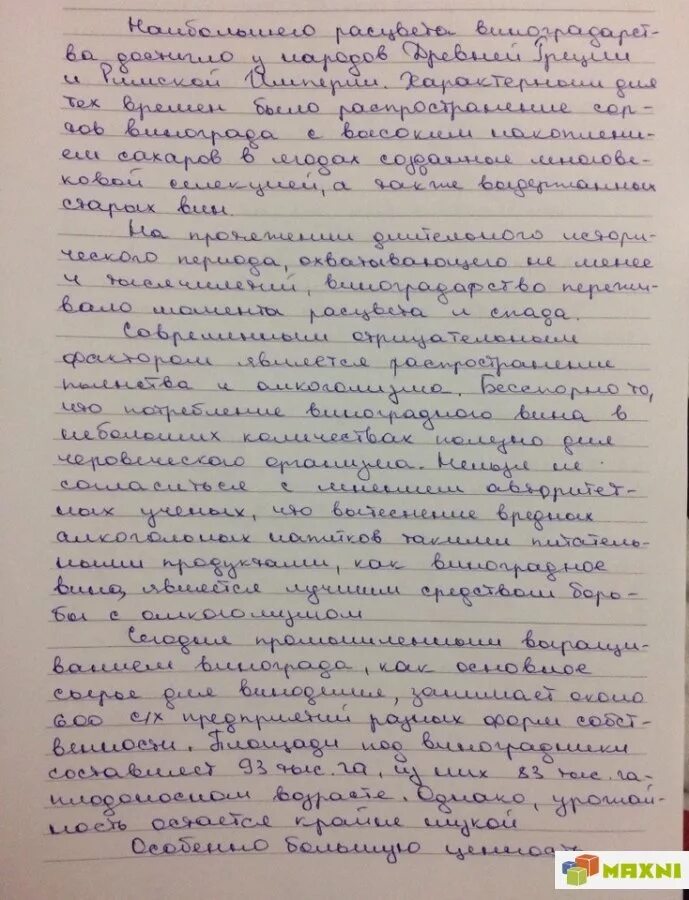 Наибольшего расцвета виноградарст-
ва достигло у народов Древней Греции
и Римской Империи. Характерным для
тех времен было распространение сор-
тов винограда с высоким накоплени-
ем сахаров в ягодах созданные многове-
ковой селекцией, а также выдержанных
старых вин.
На протяжении длительного истори-
ческого периода, охватывающего не менее
4 тысячилетий, виноградарство пережи-
вало моменты расцвета и спада.
Современным отрицательным
фактором является распространение
пьянства и алкоголизма. Бесспорно то,
что потребление виноградного вина в
небольших количествах полезно для
человеческого организма. Нельзя не
согласиться с мнением авторитет-
ных ученых, что вытеснение вредных
алкогольных напитков такими питатель-
ными продуктами, как виноградное
вино, является лучшим средством борь-
бы с алкоголизмом
Сегодня промышленным выращи-
ванием винограда, как основное
сырье для виноделия, занимает около
600 с/х предприятий разных форм собст-
венности. Площади под виноградники
составляет 93 тыс. га, из них 83 тыс. га-
плодоносном возрасте. Однако, урожай-
ность остается крайне низкой
Особенно большую ценность
MAXNI